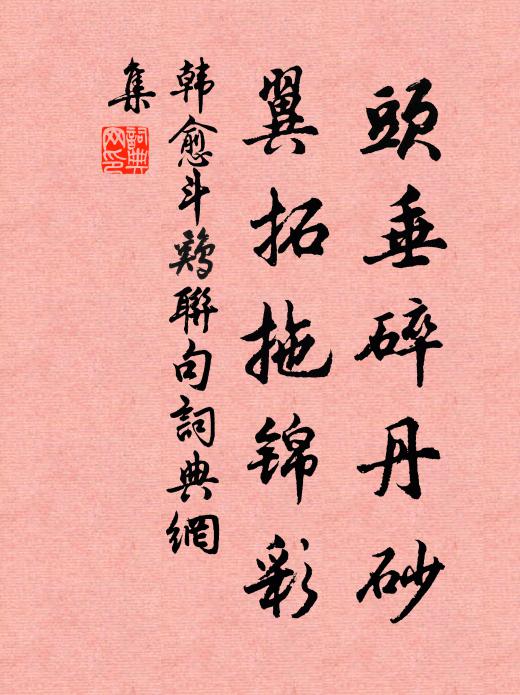 頭垂碎丹砂
翼拓拖锦彩
韩愈斗鷄聯句詞典網
集
詞典网印